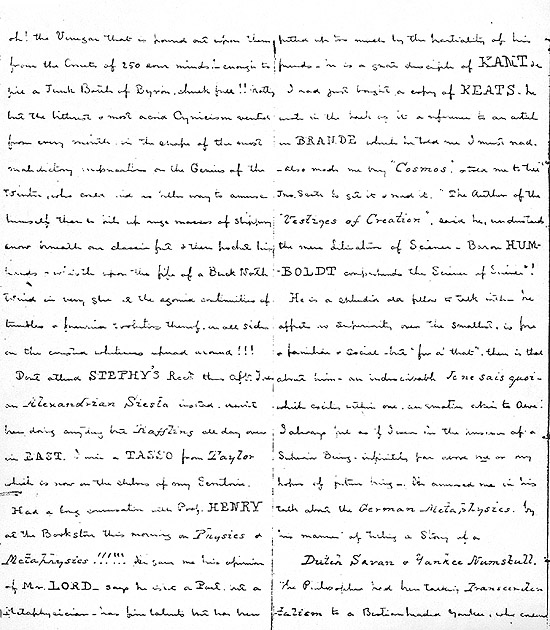 oh! the Vinegar that is poured out upon them
from the Crusts of 250 sour minds! enough to
give a Junk Bottle of Byron, chuck full!!
but the bitterest & most acrid Cynicism vented
from every mouth, in the shape of the most
maledictory vituperation on the Genius of the
Winter, who could find no other way to amuse
himself than to pile up huge masses of slippery
snow beneath our classic feet & then
hands - whistle upon the fife of a Buck North
Wind in very glee at the agonized contortions of
tumbles & thereof, on all sides
on the whiteness spread around!!!
Don't attend STEPHY'S Rectn this Aft.
an Alexandrian Siesta instead. havn't
been doing anything but Raffling all day over
in EAST. I win a TASSO from Taylor
which is now on the shelves of my Scritoire.
Had a long conversation with Prof. HENRY
at the Bookstore this morning on Physics &
Metaphysics!!!!!! He gave me his opinion
of Mr. LORD - says he is not a Poet, nor a
Metaphysician - has fine talents but has been
puffed up too much by the partiality of his
friends - he is a great disciple of KANT &c
I had just bought a copy of KEATS. he
wrote in the back of it a reference to an article
in BRANDE which he told me I must read.
- also made me buy "Cosmos", & told me to
to get it & read it. "The Author of the
"Vestiges of Creation", said he, understands
the mere Literature of Science - Baron HUM-
BOLDT comprehends the Science of Science"!
He is a splendid old fellow to talk with - he
affects no superiority over the smallest, is free
& familiar & social - but "for a' that", there is that
about him - an indescribable Je ne sais quoi -
which excites within one, an emotion akin to Awe!
I always feel as if I were in the presence of a
Superior Being - infinitely far above me or any
hopes of future being - He amused me in his
talk about the German Metaphysics. by
his manner of telling a Story of a
Dutch Savan & Yankee Numskull.
The Philosopher had been talking Transcenden-
talism to a Yankee, who